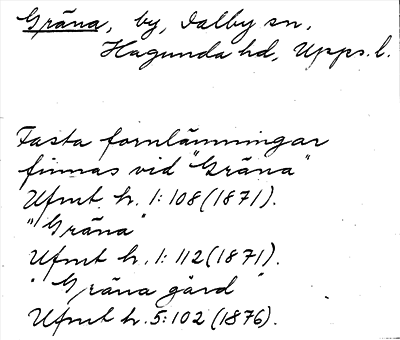 Gräna, by, Dalby sn,
Hagunda hd, Upps. l.
Fasta fornlämningar
finnas vid "Gräna"
Ufmt h. 1:108 (1871).
"Gräna"
Ufmt h. 1:112 (1871).
"Gräna gård"
Ufmt h. 5:102 (1876).